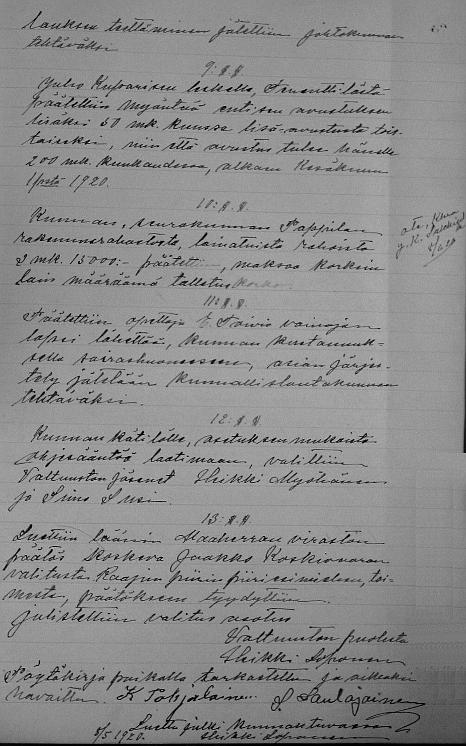 lauksen teettäminen jätettiin johtokunnan
tehtäväksi
9:§.§.
Juho Kuparisen leskelle,
päätettiin myöntää entisen avustuksen
lisäksi 50 mk. kuussa lisä-avustusta tois-
taiseksi, niin että avustus tulee hänelle
200 mk. kuukaudessa, alkaen Kesäkuun
1 pstä 1920.
10:§.§.
Kunnan, seurakunnan Pappilan
rakennusrahastosta, lainatuista rahoista
mk. 15000:- päätettiin, maksaa korkein
lain määräämä talletus korko
11:§.§.
Päätettiin opettaja E. Toivio vainajan
lapsi lähettää, kunnan kustannuk-
sella sairashuoneeseen, asian järjes-
tely jätetään kunnallislautakunnan
tehtäväksi.
12:§.§.
Kunnan kätilölle, asetuksen mukaista
ohjesääntöä laatimaan, valittiin
Valtuuston jäsenet Heikki Myöhänen
ja Simo Susi.
13:§.§.
Luettiin läänin Maaherran viraston
päätös koskeva Jaakko Koskivaaran
valitusta Raajun piirin piiriesimiehen, toi-
mesta, päätökseen tyydyttiin.
julistettiin valitus osotus
Valtuuston puolesta
Heikki Loponen
Pöytäkirja paikalla tarkastettu ja oikeaksi
havaittu. K Pohjalainen
Luettu julki kunnaktuvassa
8/5 1920. Heikki Loponen